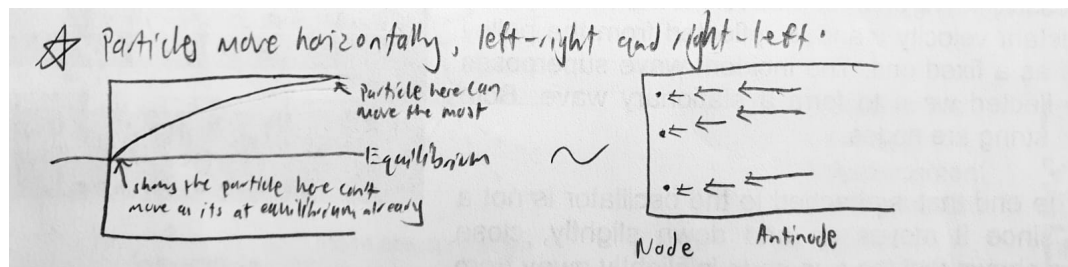 Particles move horizontally, left-right and right left.
Particle here can
move the most
Equilibrium
shows the particle here can't
move as its at equilibrium already
Node
Antinode